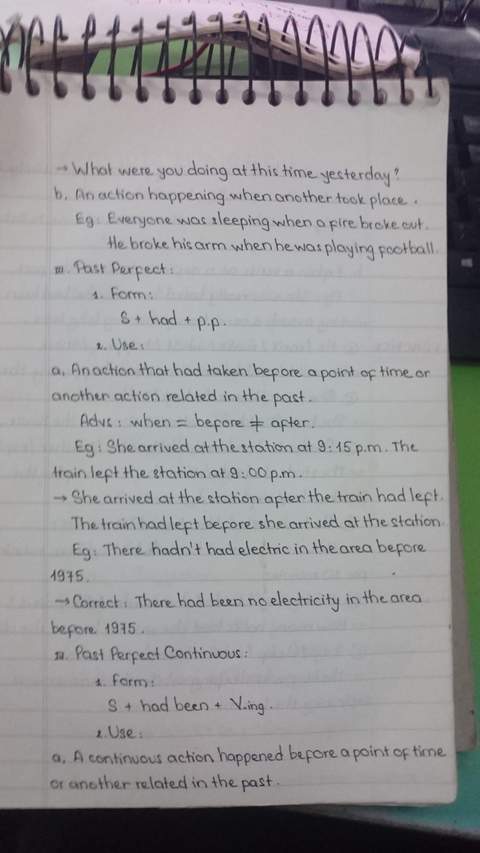 → What were you doing at this time yesterday?
b. An action happening when another took place.
Eg: Everyone was sleeping when a fire broke out.
He broke his arm when he was playing football.
III. Past Perfect:
1. Form:
S + had + p.p.
2. Use:
a. An action that had taken before a point of time or
another action related in the past.
Advs: when = before ≠ after.
Eg: She arrived at the station at 9:15 p.m. The
train left the station at 9:00 p.m.
→ She arrived at the station after the train had left.
The train had left before she arrived at the station
Eg: There hadn't had electric in the area before
1975.
→ Correct: There had been no electricity in the area
before 1975.
IV. Past Perfect Continuous:
1. Form:
S + had been + V-ing.
2. Use:
a. A continuous action happened before a point of time
or another related in the past.